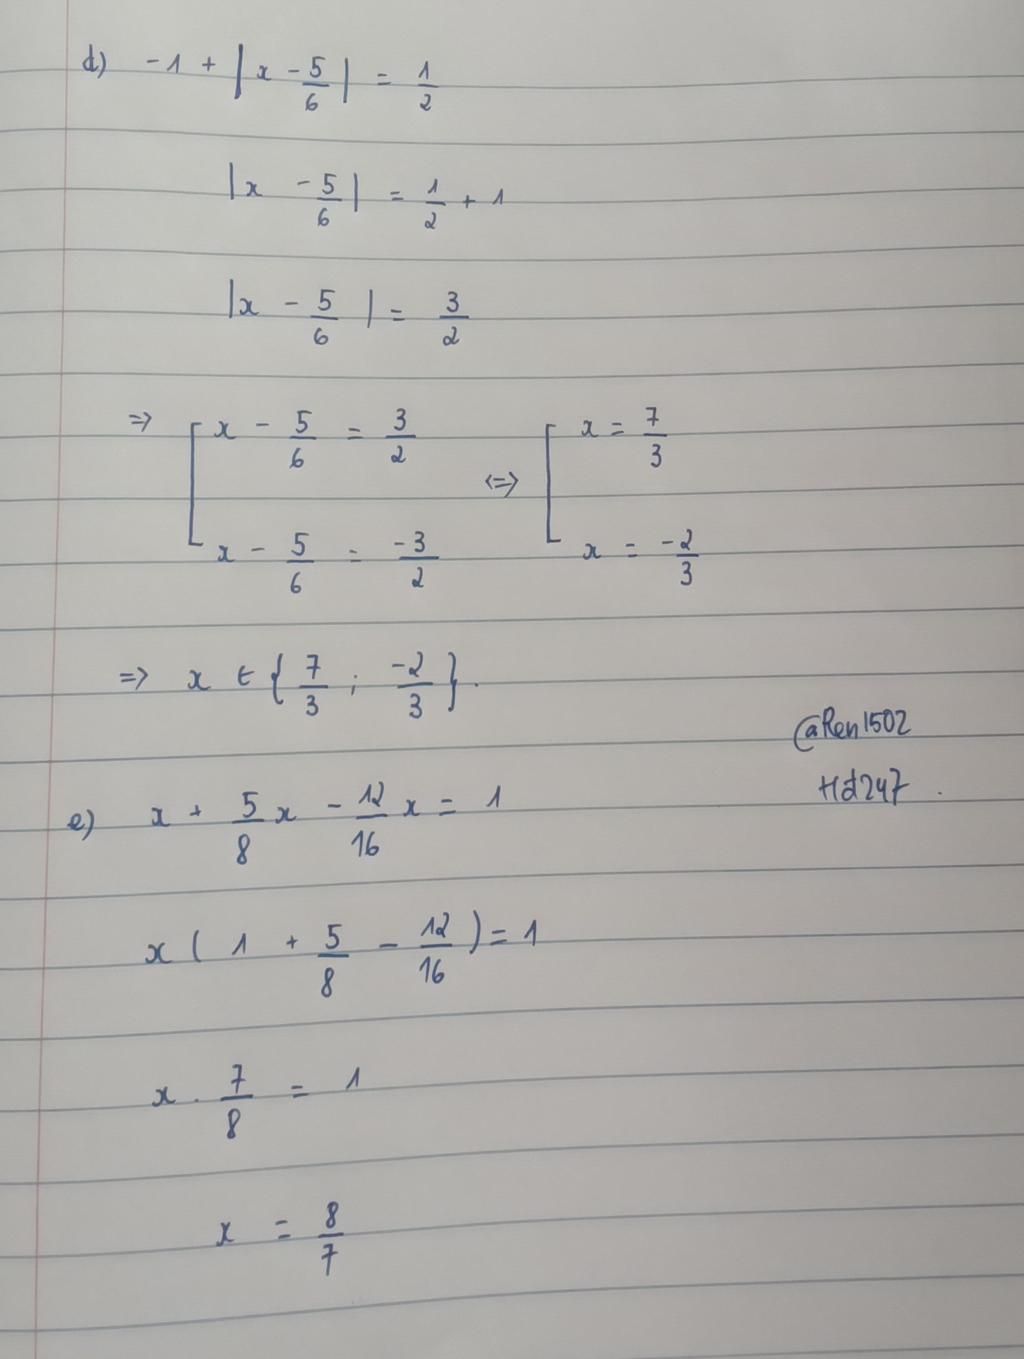 d) -1 + |x - 5/6| = 1/2
|x - 5/6| = 1/2 + 1
|x - 5/6| = 3/2
=> [ x - 5/6 = 3/2 <=> [ x = 7/3
x - 5/6 = -3/2 x = -2/3
=> x ∈ {7/3 ; -2/3}.
@Ren1502
Hd247.
e) x + 5/8 x - 12/16 x = 1
x ( 1 + 5/8 - 12/16 ) = 1
x . 7/8 = 1
x = 8/7